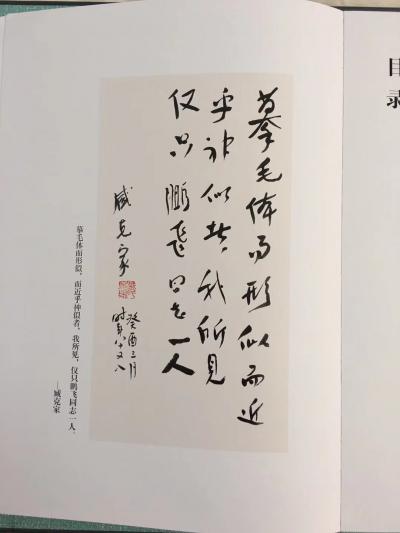 目录
摹毛体而形似而近
乎神似者我所见
仅只鹏飞同志一人
臧克家
癸酉三月
时年八十又八
摹毛体而形似，而近乎神似者，我所见，仅只鹏飞同志一人。
——臧克家